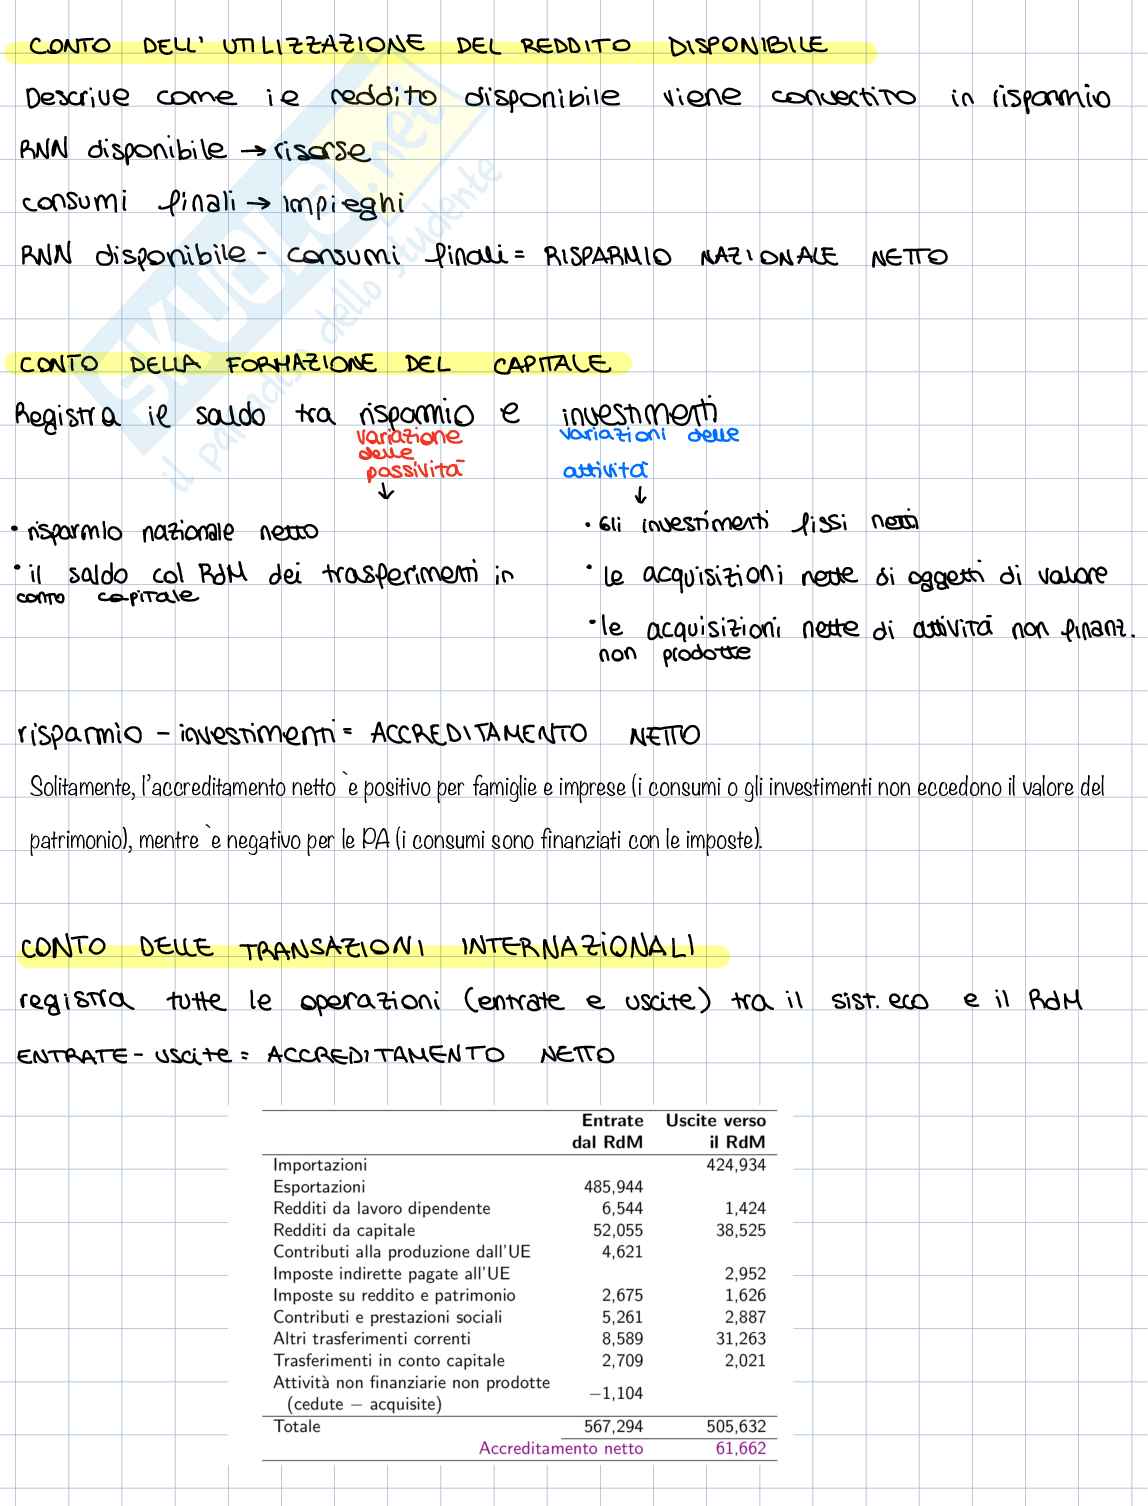 CONTO DELL' UTILIZZAZIONE DEL REDDITO DISPONIBILE
Descrive come il reddito disponibile viene convertito in risparmio
RNN disponibile → risorse
consumi finali → impieghi
RNN disponibile - consumi finali = RISPARMIO NAZIONALE NETTO
CONTO DELLA FORMAZIONE DEL CAPITALE
Registra il saldo tra risparmio e investimenti
variazione delle passività ↓
variazioni delle attività ↓
• risparmio nazionale netto
• il saldo col RdM dei trasferimenti in conto capitale
• Gli investimenti fissi netti
• le acquisizioni nette di oggetti di valore
• le acquisizioni nette di attività non finanz. non prodotte
risparmio - investimenti = ACCREDITAMENTO NETTO
Solitamente, l'accreditamento netto `e positivo per famiglie e imprese (i consumi o gli investimenti non eccedono il valore del
patrimonio), mentre `e negativo per le PA (i consumi sono finanziati con le imposte).
CONTO DELLE TRANSAZIONI INTERNAZIONALI
registra tutte le operazioni (entrate e uscite) tra il sist. eco e il RdM
ENTRATE - uscite = ACCREDITAMENTO NETTO
Entrate dal RdM Uscite verso il RdM
Importazioni 424,934
Esportazioni 485,944
Redditi da lavoro dipendente 6,544 1,424
Redditi da capitale 52,055 38,525
Contributi alla produzione dall'UE 4,621
Imposte indirette pagate all'UE 2,952
Imposte su reddito e patrimonio 2,675 1,626
Contributi e prestazioni sociali 5,261 2,887
Altri trasferimenti correnti 8,589 31,263
Trasferimenti in conto capitale 2,709 2,021
Attività non finanziarie non prodotte
(cedute − acquisite) −1,104
Totale 567,294 505,632
Accreditamento netto 61,662
SKUOLA.net
il paradiso dello studente